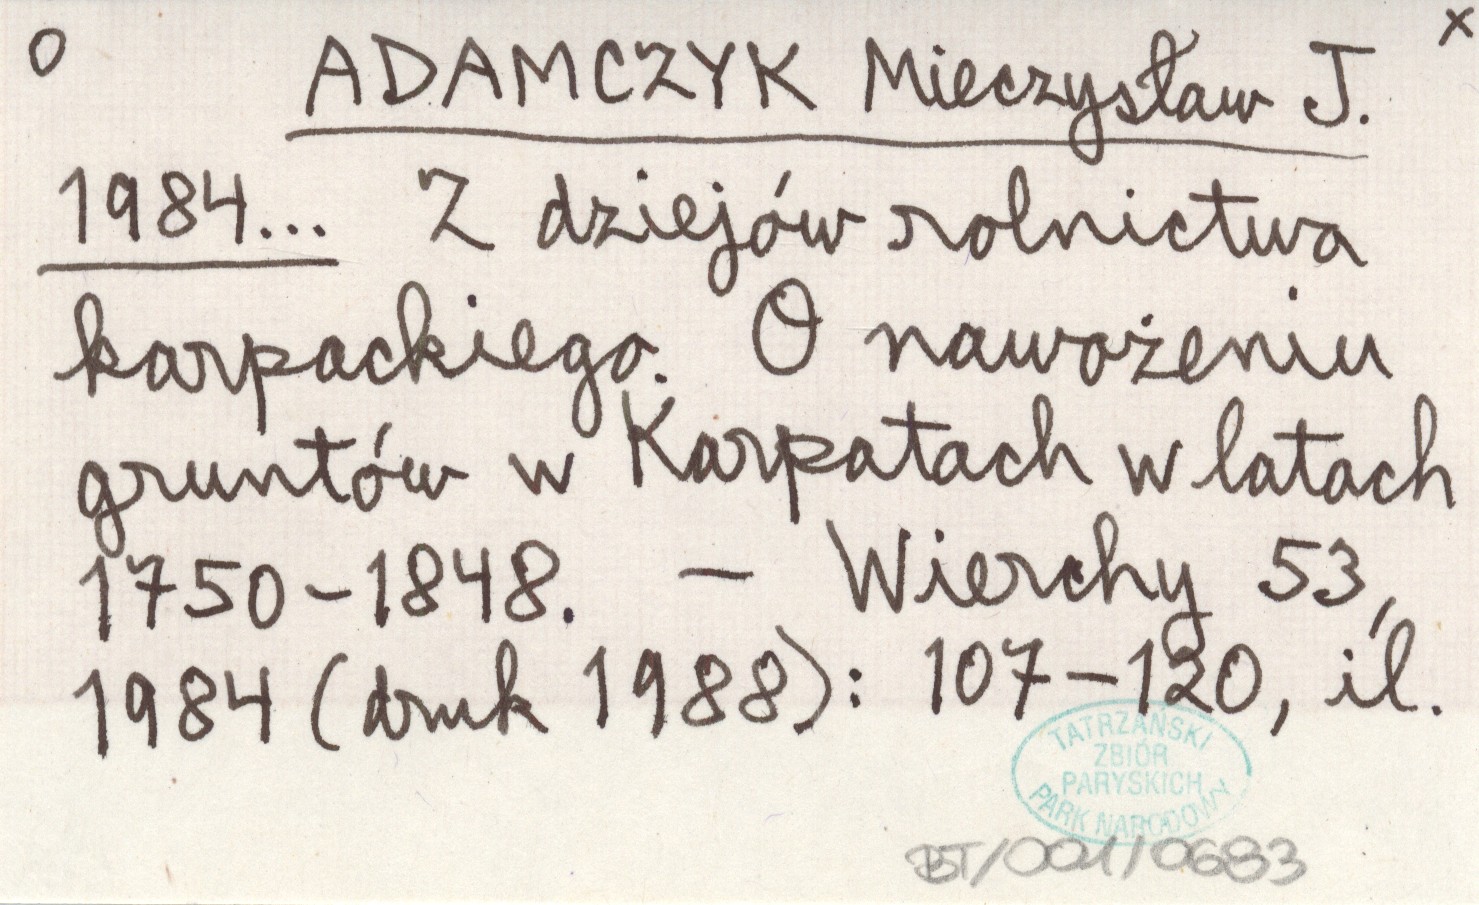 O ADAMCZYK Mieczysław J. x
1984... Z dziejów rolnictwa
karpackiego. O nawożeniu
gruntów w Karpatach w latach
1750-1848. — Wierchy 53,
1984 (druk 1988): 107-120, il.
TATRZAŃSKI
ZBIÓR
PARYSKICH
PARK NARODOWY
BT/001/0683